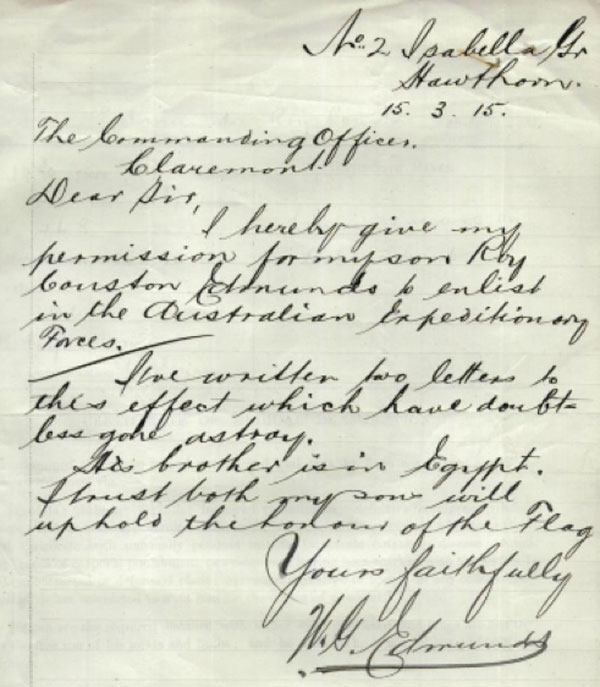 No. 2 Isabella Gr
Hawthorn.
15. 3. 15.
The Commanding Officer.
Claremont.
Dear Sir,
I hereby give my
permission for my son Roy
Couston Edmunds to enlist
in the Australian Expeditionary
Forces.
I've written two letters to
this effect which have doubt=
less gone astray.
His brother is in Egypt.
I trust both my sons will
uphold the honour of the Flag
Yours faithfully
W. G. Edmunds